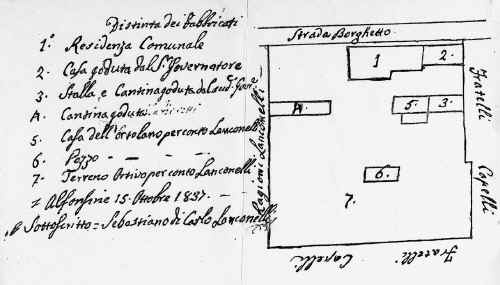 Distinta dei fabbricati
1° Residenza Comunale
2. Casa goduta dal S.r Governatore
3. Stalla, e Cantina goduta dal sud.o Gov.re
4. Cantina goduta
5. Casa dell'Ortolano per conto Lanconelli
6. Pozzo per conto
7. Terreno Ortivo per conto Lanconelli
= Alfonsine 15. Ottobre 1837. —
Sottoscritto = Sebastiano di Carlo Lanconelli
Strada Borghetto.
1
2.
Fratelli
4.
5.
3.
Lanconelli
6.
Capelli
7.
Capelli
Fratelli